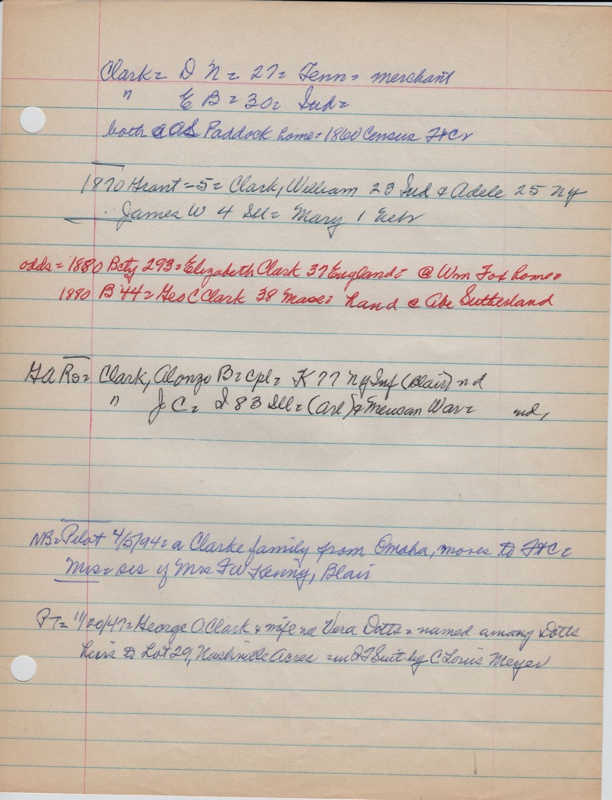 Clark = D N = 27 = Tenn = merchant
" E B = 30 = Ind =
both @ AS Paddock home = 1860 Census FtC
1870 Grant = 5 = Clark, William 23 Ind & Adele 25 NY
James W 4 Ill = Mary 1 Nebr
odds = 1880 Bcty 293 = Elizabeth Clark 37 England = @ Wm Fox home =
1880 B 44 = Geo C Clark 38 Mass = hand @ Abe Sutherland
GARs = Clark, Alonzo B = Cpl = K 77 NY Inf (Blair) nd
" J C = I 83 Ill = (Arl) & Mexican War = nd,
NB = Pilot 4/5/94 = a Clarke family from Omaha, moves to FtC =
Mrs = sis of Mrs FW Kenny, Blair
PT = 11/20/47 = George O. Clark & wife ne Vera Dotts = named among Dotts
heirs to Lot 29, Nashville Acres = in QT Suit by C Louis Meyer